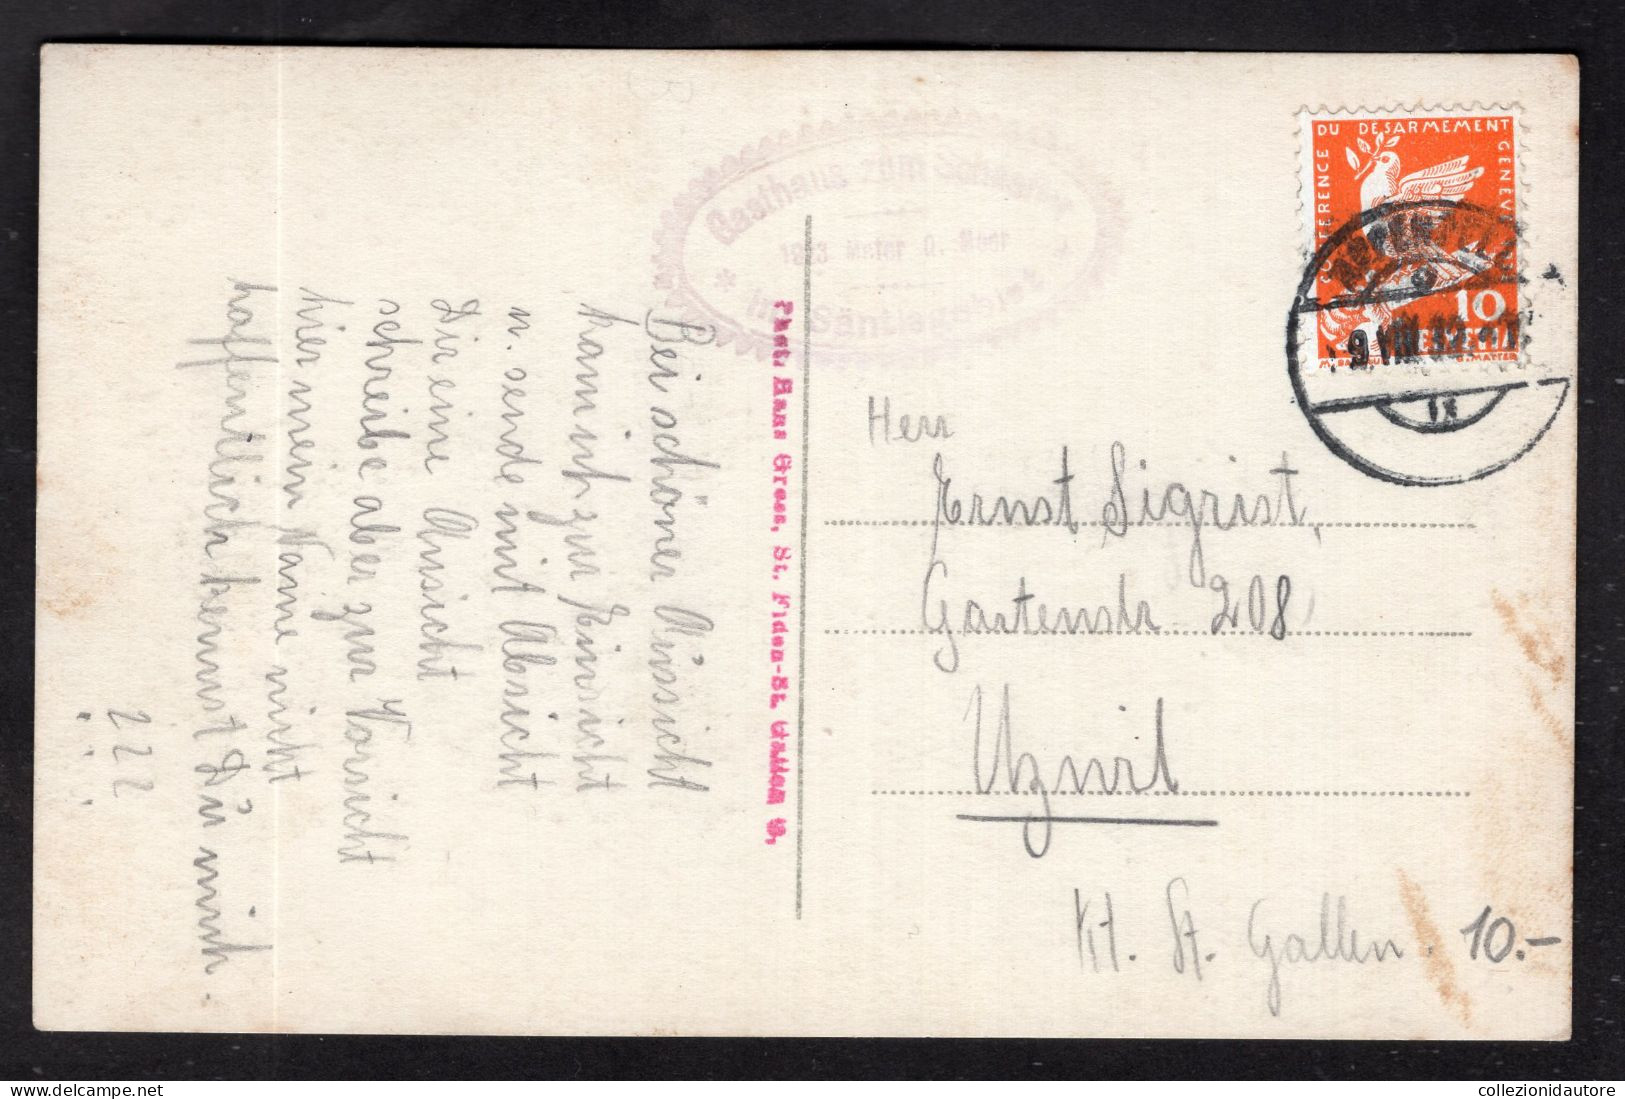 Bei schöner Aussicht
kam ich zur Einsicht
u. sende mit Absicht
Dir eine Ansicht
schreibe aber zur Vorsicht
hier mein Name nicht
hoffentlich kennst Du mich.
222
Phot. Hans Gross, St. Fiden-St. Gallen
Gasthaus zum
Meter ü. Meer
im Säntisgebiet
CONFÉRENCE DU DÉSARMEMENT GENÈVE
10
HELVETIA
APPENZELL
9.VIII.32
IX
Herr
Ernst Sigrist,
Gartenstr 208
Uzwil
Kt. St. Gallen.
10.-
collezionidautore